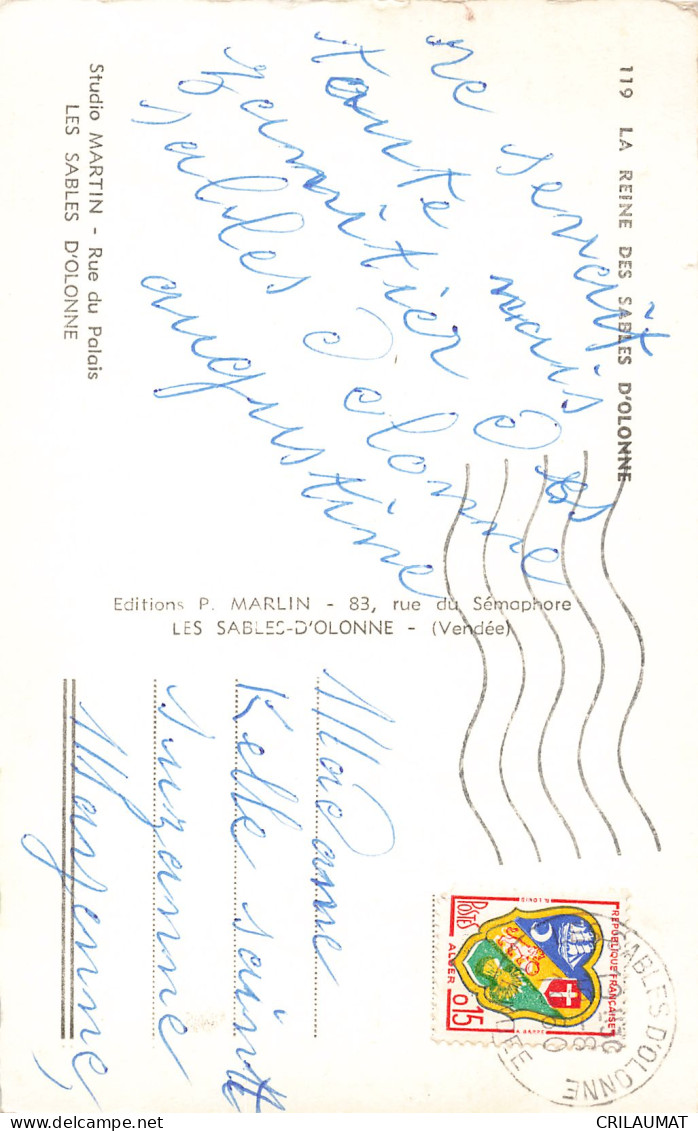 119 LA REINE DES SABLES D'OLONNE
ne serait
toute mais
d
Sables d olonne
augustine
Studio MARTIN - Rue du Palais
LES SABLES D'OLONNE
Editions P. MARLIN - 83, rue du Sémaphore
LES SABLES-D'OLONNE - (Vendée)
REPUBLIQUE FRANÇAISE
POSTES
ALGER
0,15
SABLES D'OLONNE
VENDEE
Madame
Kelle sainte
suzanne
Mayenne
CRILAUMAT